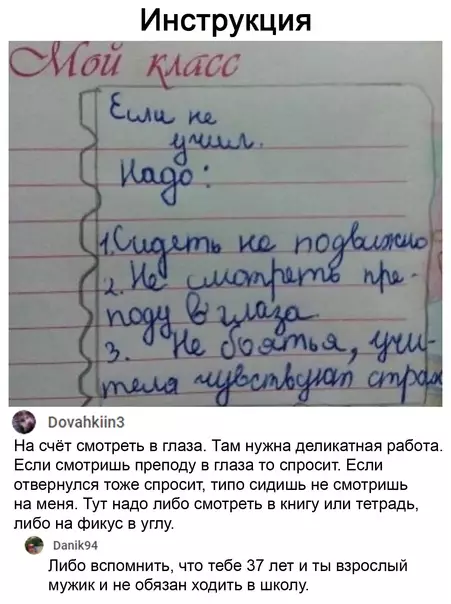 Инструкция
Мой класс
Если не
учил.
Надо:
1. Сидеть не подвижно
2. Не смотреть пре-
поду в глаза
3. Не боятья, учи-
теля чувствуют страх
Dovahkiin3
На счёт смотреть в глаза. Там нужна деликатная работа.
Если смотришь преподу в глаза то спросит. Если
отвернулся тоже спросит, типо сидишь не смотришь
на меня. Тут надо либо смотреть в книгу или тетрадь,
либо на фикус в углу.
Danik94
Либо вспомнить, что тебе 37 лет и ты взрослый
мужик и не обязан ходить в школу.